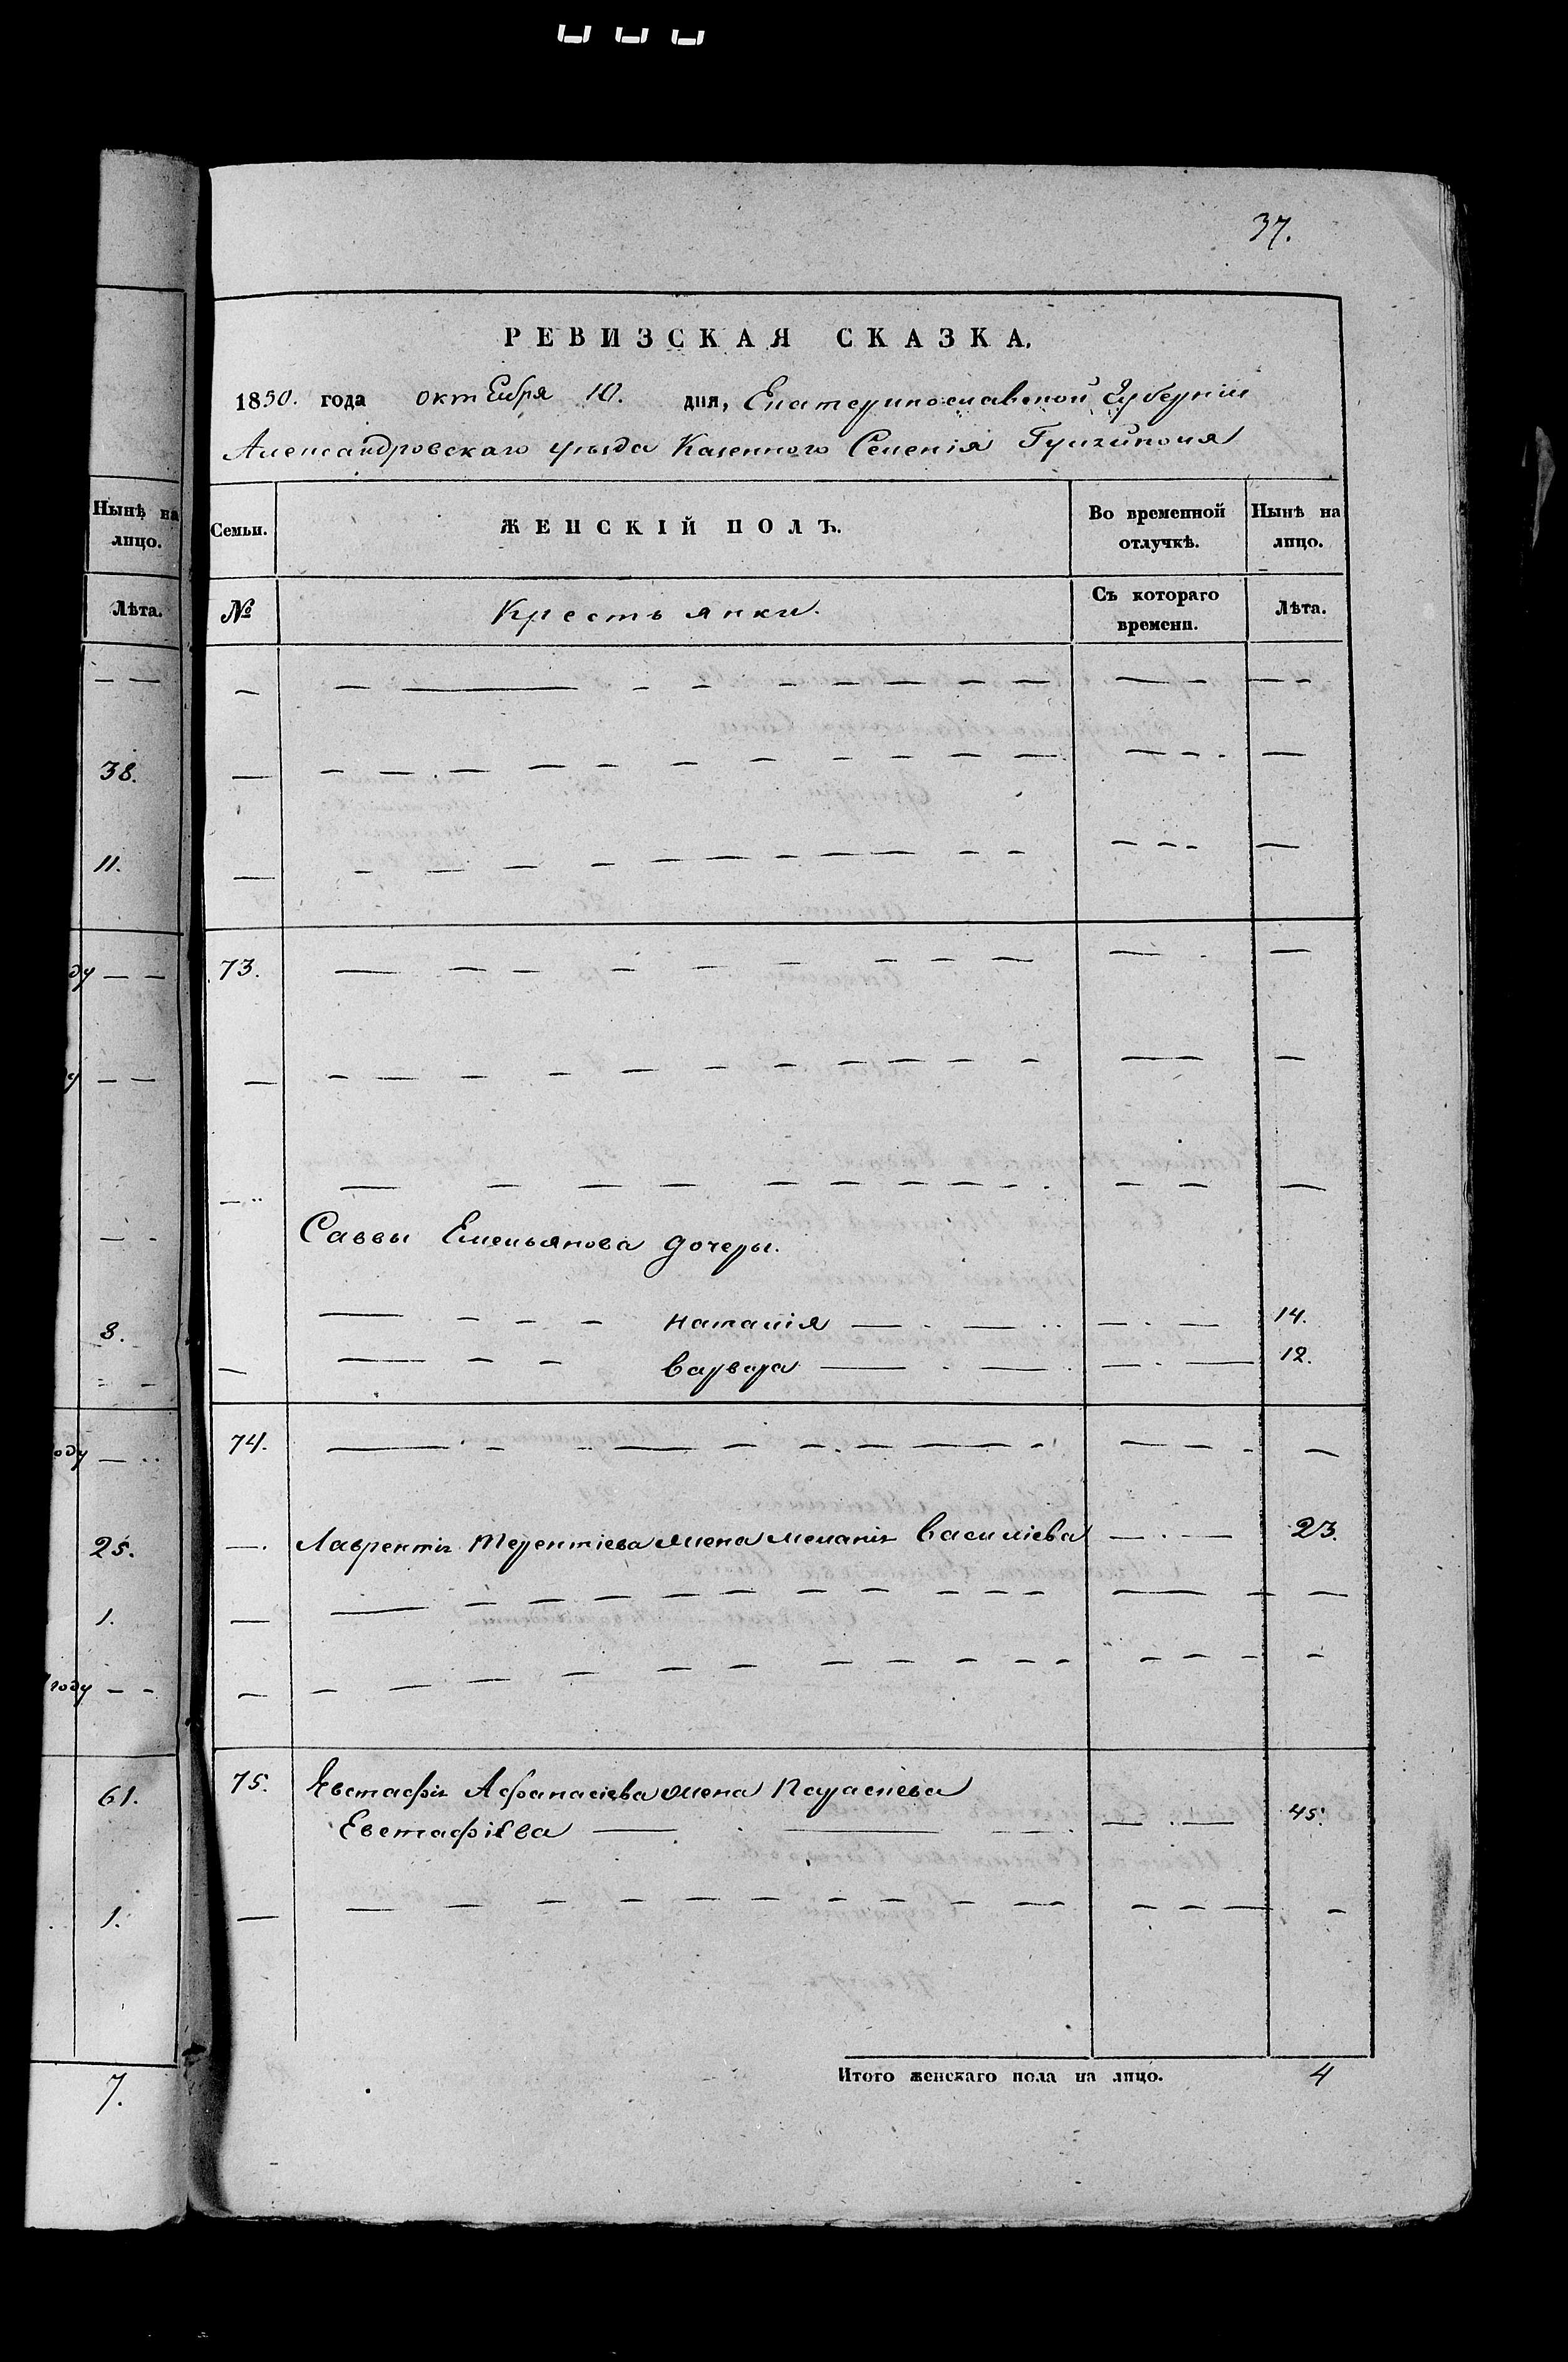 37.
РЕВИЗСКАЯ СКАЗКА.
1850. года октября 10. дня, Екатеринославской Губерніи
Александровскаго уѣзда Казенного Селенія Гуляйполя
Нынѣ на лицо.
Лѣта.
Семьи.
ЖЕНСКІЙ ПОЛЪ.
Во временной отлучкѣ.
Нынѣ на лицо.
№
Крестьянки.
Съ котораго времени.
Лѣта.
38.
11.
ду
73.
Саввы Емельянова дочеры.
Наталія 14.
8.
Варвара 12.
оду
74.
25.
Лаврентія Терентіева жена Меланія Василіева 23.
1.
году
61.
75. Евстафія Афанасіева жена Параскева
Евстафіева 45.
1.
7.
Итого женскаго пола на лицо. 4